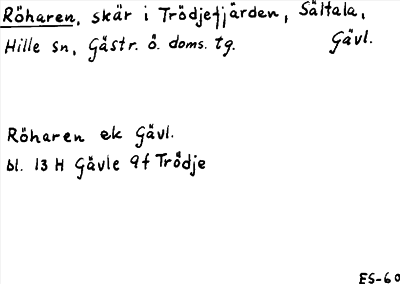 Röharen, skär i Trödjefjärden, Sältala,
Hille sn, Gästr. ö. doms. tg. Gävl.
Röharen ek Gävl.
bl. 13 H Gävle 9f Trödje
ES-60